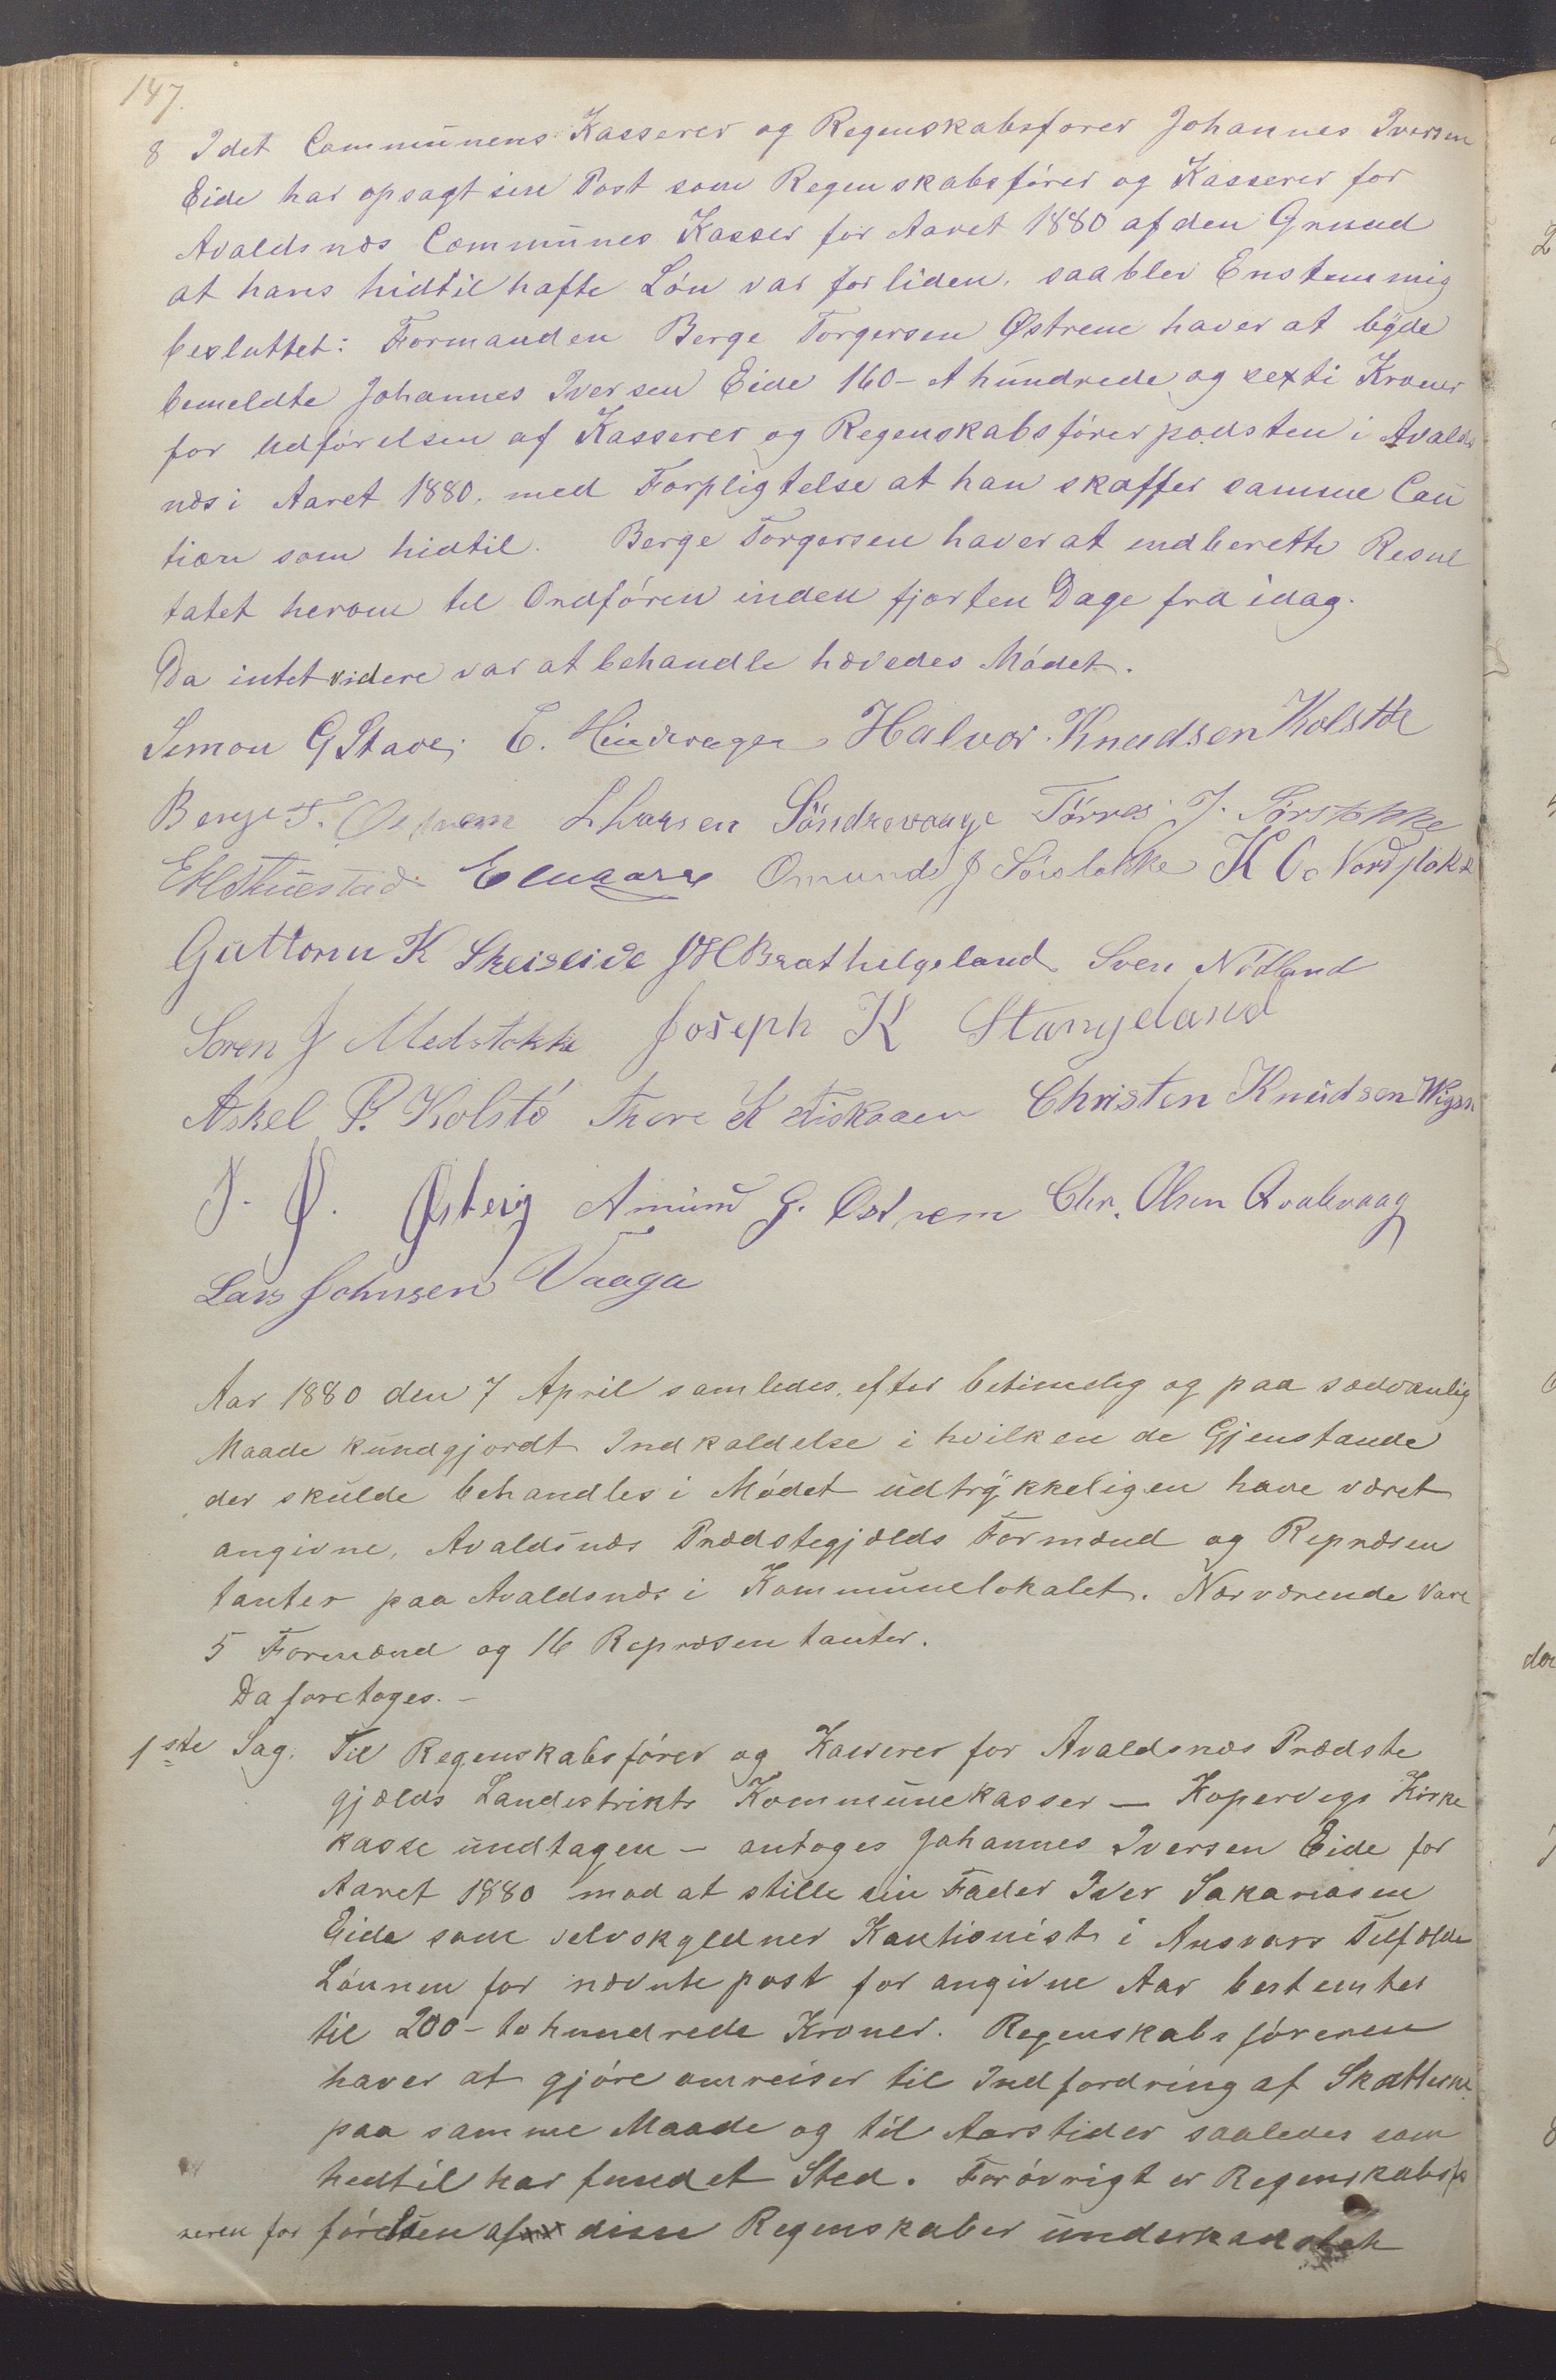 147.
8 Idet Communens Kasserer og Regenskabsfører Johannes Iversen
Eide har opsagt sin Post som Regenskabsfører og Kasserer for
Avaldsnæs Communes Kasser for Aaret 1880 af den Grund
at hans hidtil hafte Løn var for liden, saa blev Enstemmig
besluttet: Formanden Berge Torgersen Østrem haver at byde
bemeldte Johannes Iversen Eide 160 - Et hundrede og sexti Kroner
for Udførelsen af Kasserer og Regenskabsfører posten i Avalds
næs i Aaret 1880, med Forpligtelse at han skaffer samme Cau
tion som hidtil. Berge Torgersen haver at indberette Resul
tatet herom til Ordføren inden fjorten Dage fra idag.
Da intet videre var at behandle hævedes Mødet.
Simon G Stave, E. Hinderagen Halvor Knudsen Kolstø
Berge T. Østrem L Larsen Söndrevaage Törres J. Sørstokke
Omund J Sørstokke K O. Nordstokke
Guttorm K Skeiseide J H Brathelgeland Sven Nödland
Soren J Medstokke Joseph K Stangeland
Askel P. Kolstö Thore K Fiskaaen Christen Knudsen
J. Ø. Østeig Amund G. Østrem Chr. Olsen Qvalevaag
Lars Johnsen Vaaga
Aar 1880 den 7 April samledes, efter betimelig og paa sædvanlig
Maade kundgjordt Indkaldelse i hvilken de Gjenstande
der skulde behandles i Mødet udtrykkeligen have været
angivne, Avaldsnæs Prædstegjælds Formænd og Repræsen
tanter paa Avaldsnæs i Kommunelokalet. Nærværende vare
5 Formænd og 16 Repræsentanter.
Da foretoges. -
1ste Sag. Til Regenskabsfører og Kasserer for Avaldsnæs Prædste
gjælds Landistrikts Kommunekasser - Kopervigs Kirke
kasse undtagen - antoges Johannes Iversen Eide for
Aaret 1880 mod at stille sin Fader Iver Sakariasen
Eide som selvskyldner Kautionist i Ansvars Tilfælde
Lønnen for nævnte post for angivne Aar bestemtes
til 200 - to hundrede Kroner. Regenskabsføreren
haver at gjøre omreiser til Indfordring af Skatterne
paa samme Maade og til Aarstider saaledes som
hedtil har fundet Sted. Forøvrigt er Regenskabsfø
reren for førelsen af disse Regenskaber underkastet